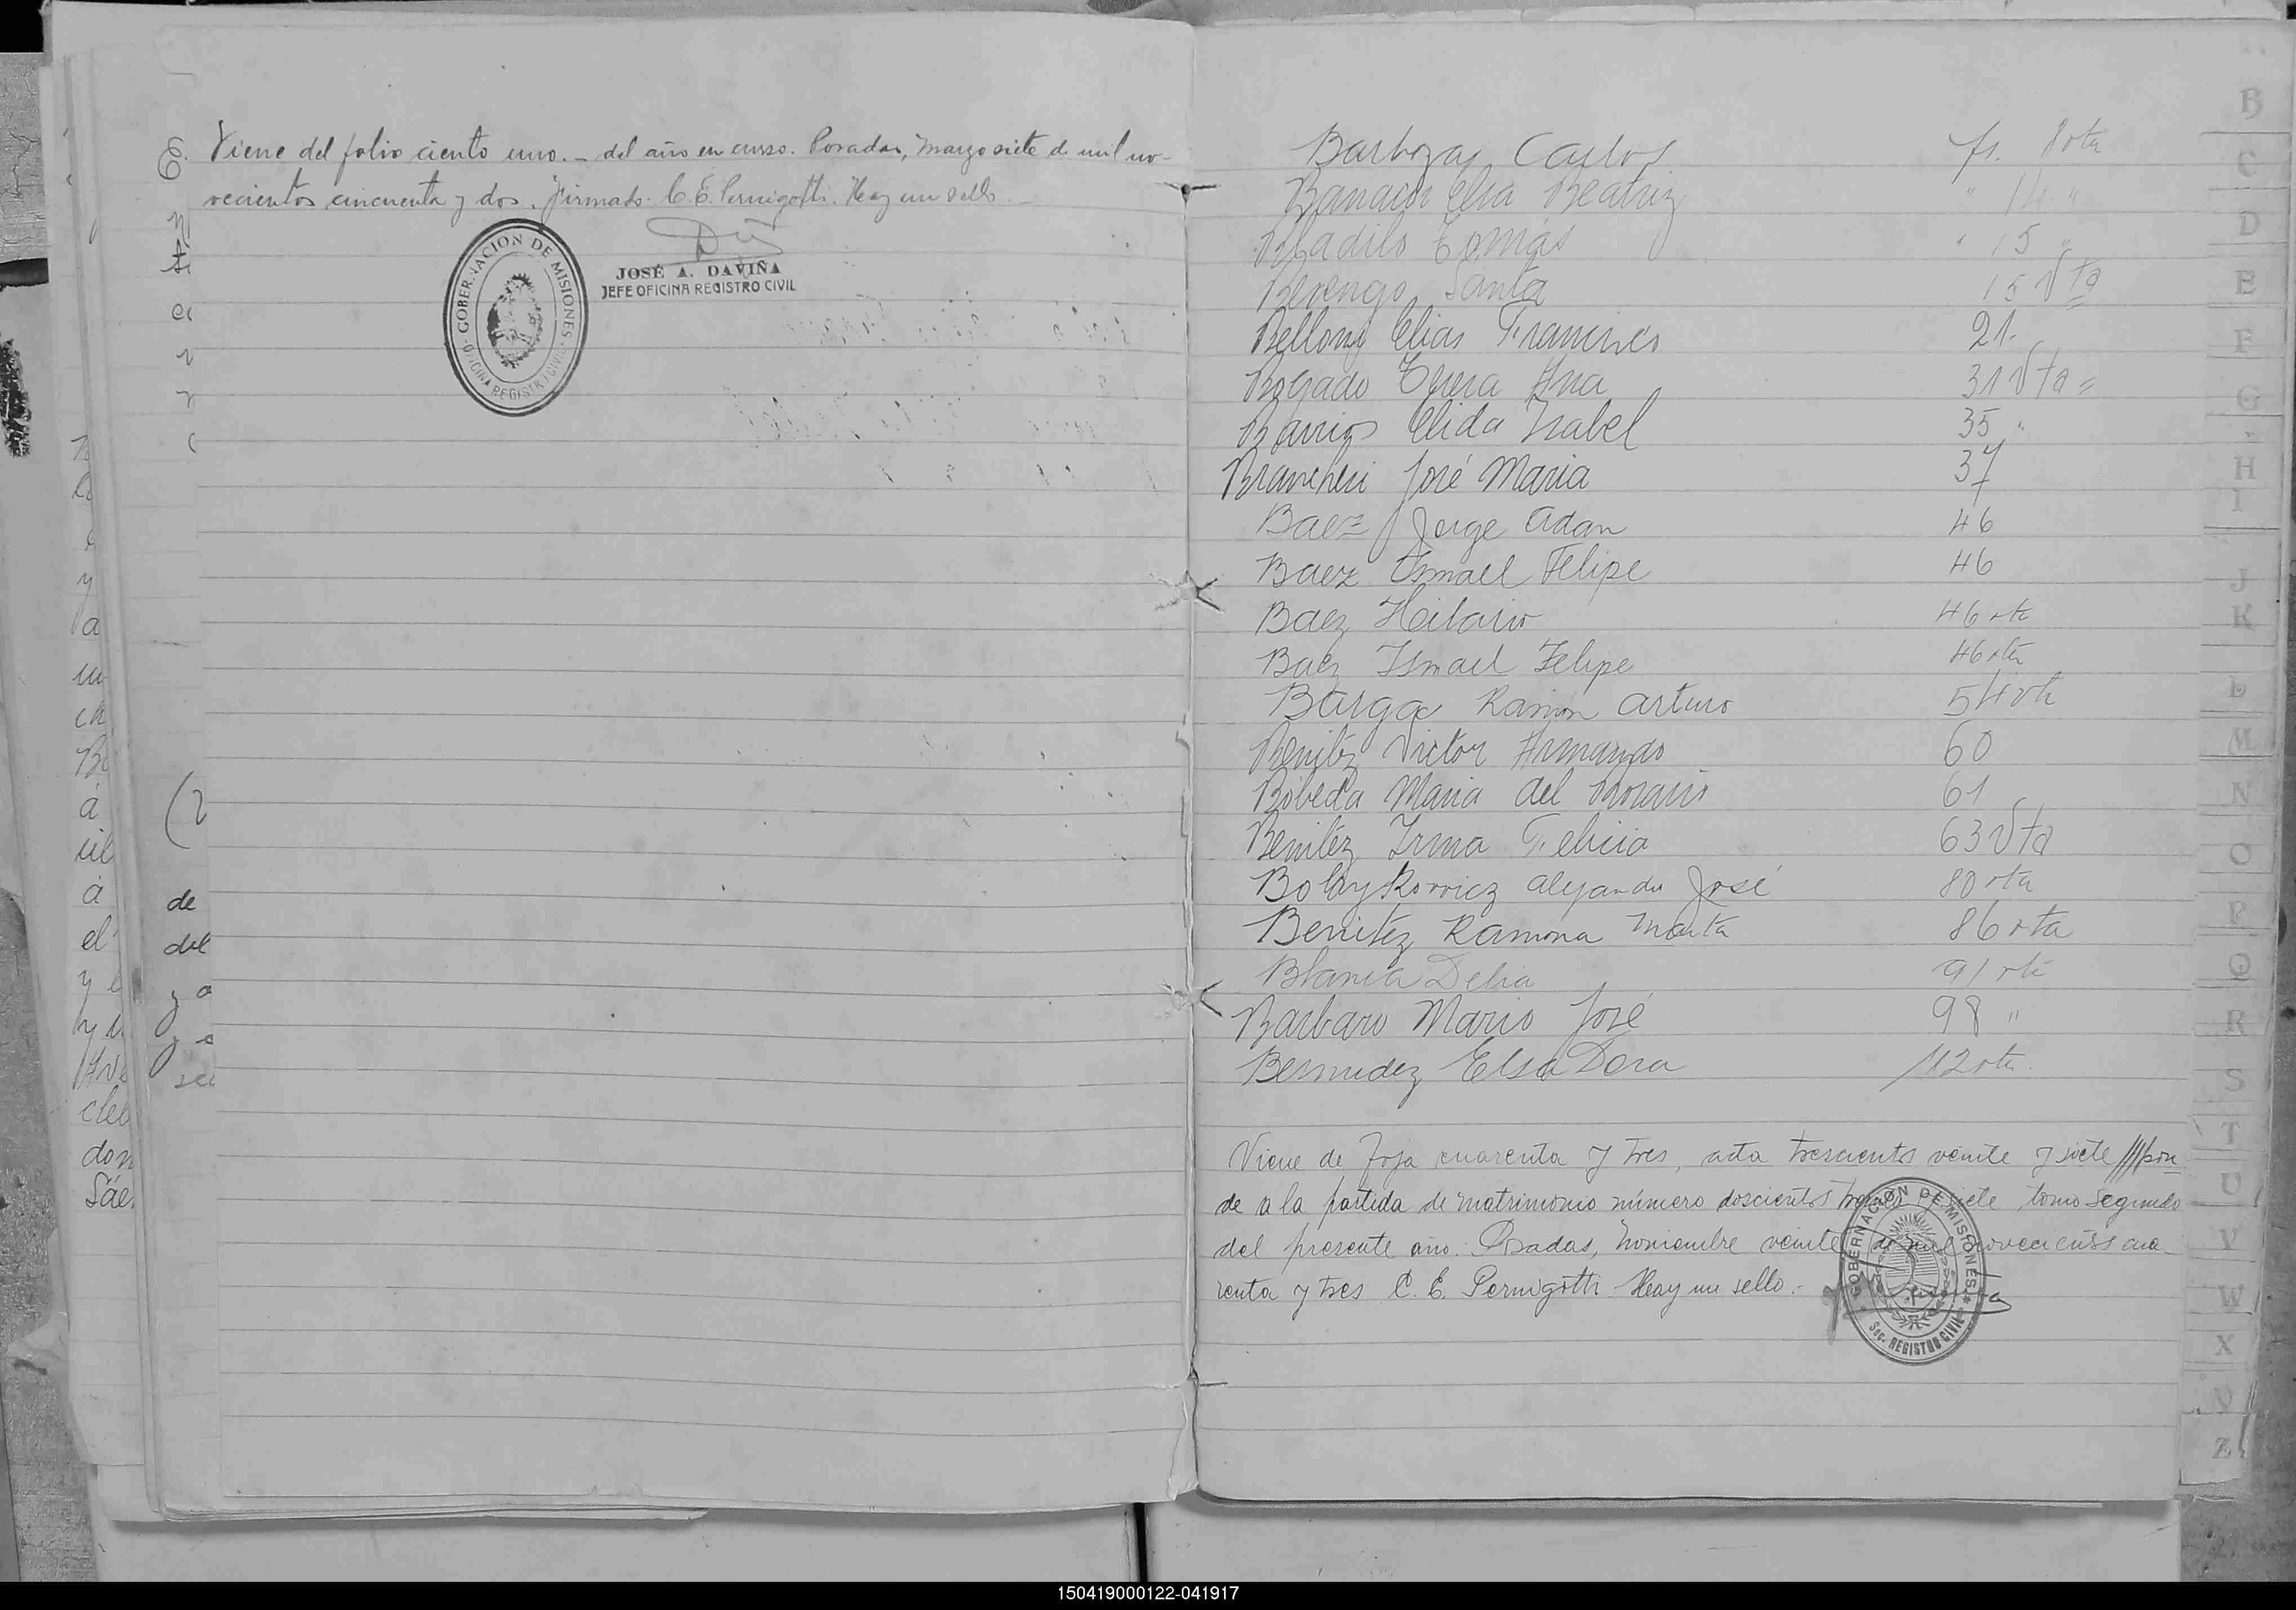 Viene del folio ciento uno. - del año en curso. Posadas, Marzo siete de mil no-
vecientos cincuenta y dos. Firmado: C. E. Pernigotti. Hay un sello.
GOBERNACION DE MISIONES
OFICINA REGISTRO CIVIL
JOSÉ A. DAVIÑA
JEFE OFICINA REGISTRO CIVIL
de
del
y a
Barboza, Carlos fs. 8 vta
Elsa Beatriz " 14 "
Tomás " 15 "
Berengo Santa 15 Vta
Bellony Elias Francisco 21.
Bogado Ana 31 Vta =
Barrios Elida Isabel 35 "
Brancheri José Maria 37
Baez Jorge Adan 46
Baez Ismael Felipe 46
Baez Hilario 46 vta
Baez Ismael Felipe 46 vta
Barga Ramón Arturo 54 vta
Benitéz Victor Armando 60
Bobeda Maria del Rosario 61
Benitéz Irma Felicia 63 Vta
Alejandro José 80 vta
Benitéz Ramona Marta 86 vta
Blanca Delia 91 vta
Barbaro Mario José 98 "
Bermudez Elsa Dora 112 vta
Viene de foja cuarenta y tres, acta trescientos veinte y siete ///pon
de a la partida de matrimonio número doscientos siete, tomo segundo
del presente año. Posadas, Noviembre veinte de mil novecientos cua-
renta y tres C. E. Pernigotti Hay un sello.-
GOBERNACIÓN DE MISIONES
Sec. REGISTRO CIVIL
B
C
D
E
F
G
H
I
J
K
L
M
N
O
P
Q
R
S
T
U
V
W
X
Y
Z
150419000122-041917